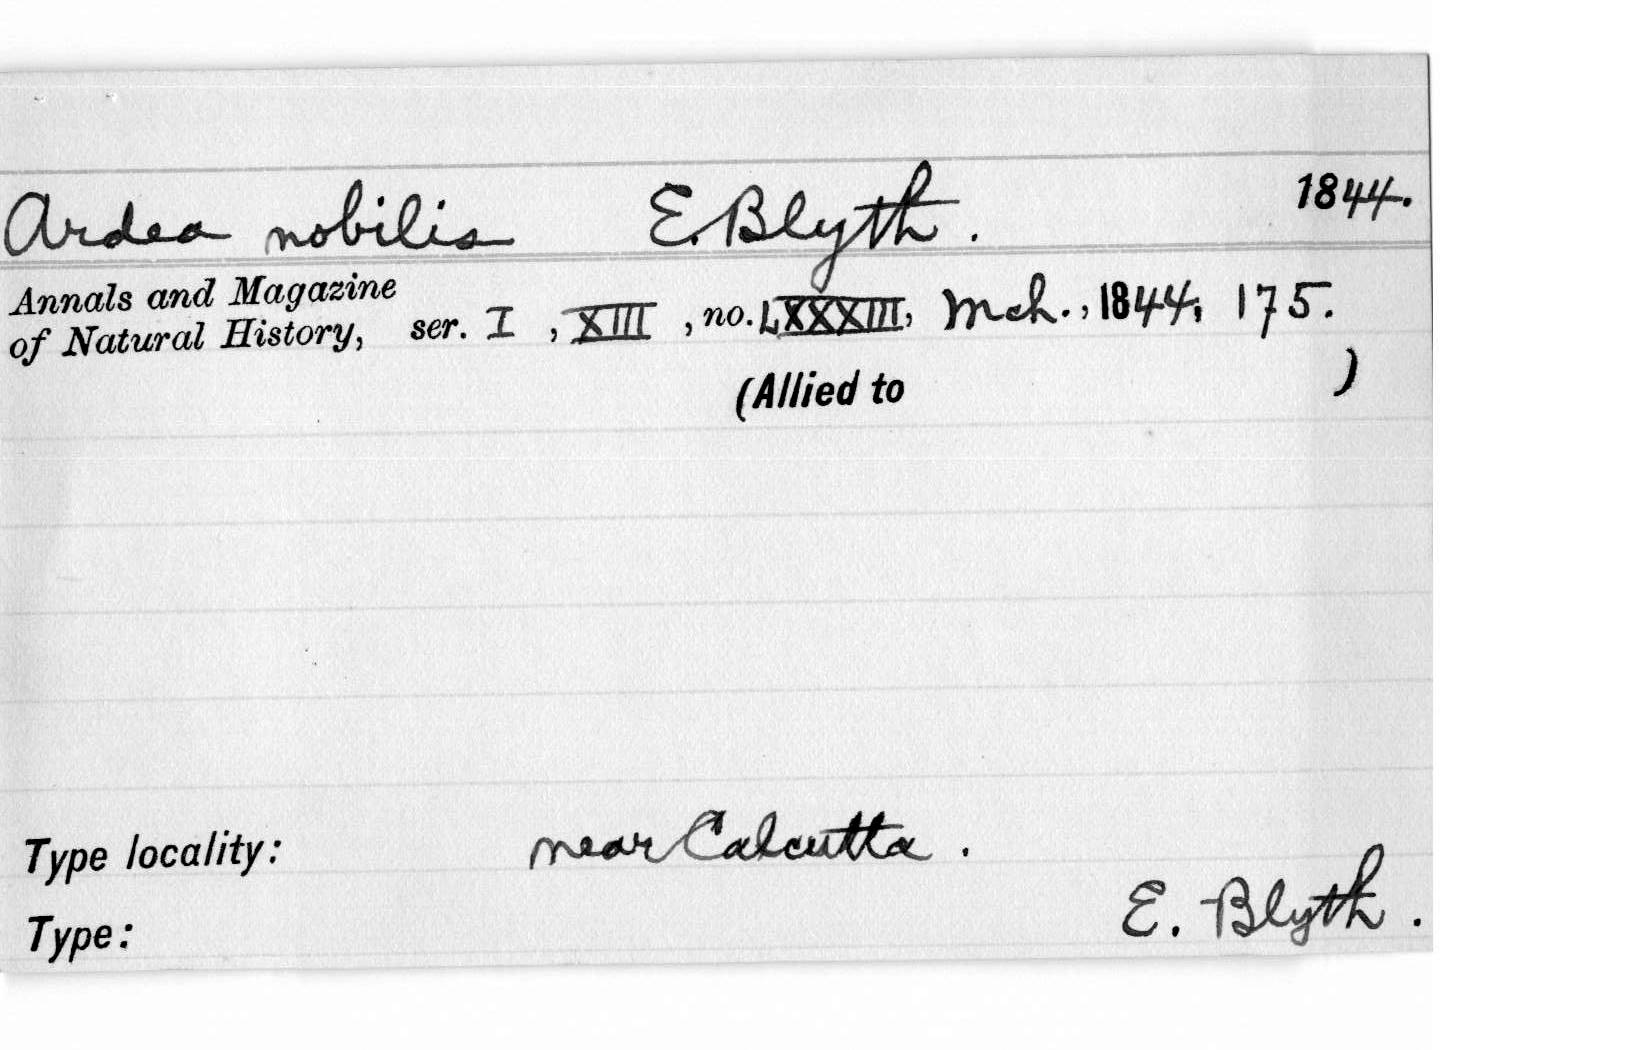 Ardea nobilis E. Blyth. 1844.
Annals and Magazine
of Natural History, ser. I, XIII, no. LXXXIII, Mch., 1844, 175.
(Allied to )
Type locality: near Calcutta.
Type: E. Blyth.